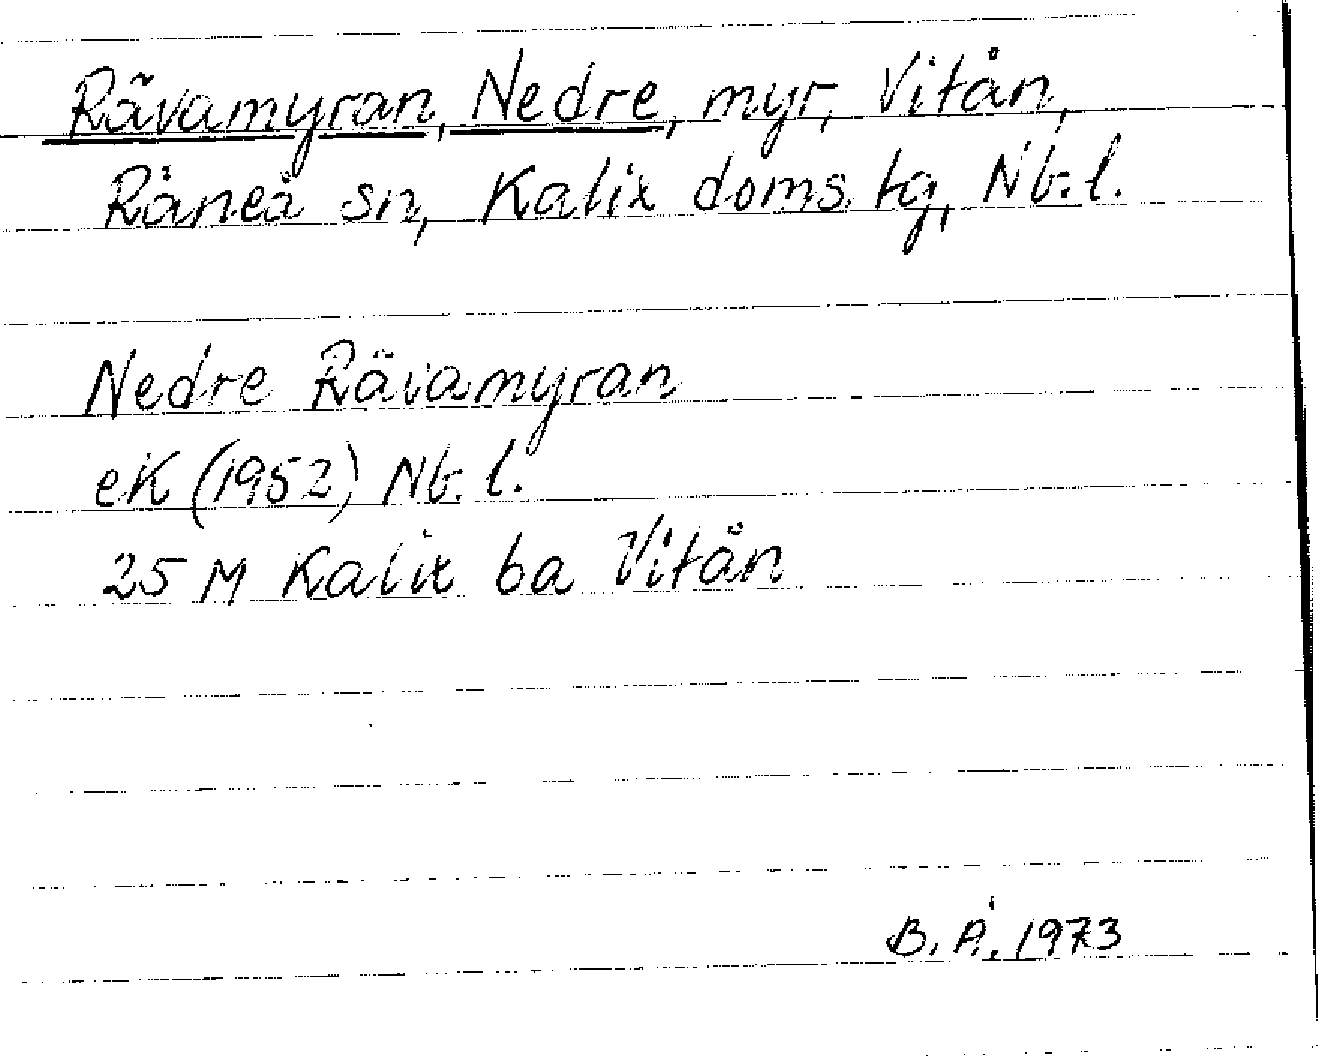 Rävamyran, Nedre, myr, Vitån,
Råneå sn, Kalix doms. tg, Nb. l.
Nedre Rävamyran
eK (1952) Nb. l.
25 M Kalix ba Vitån
B. Å. 1973